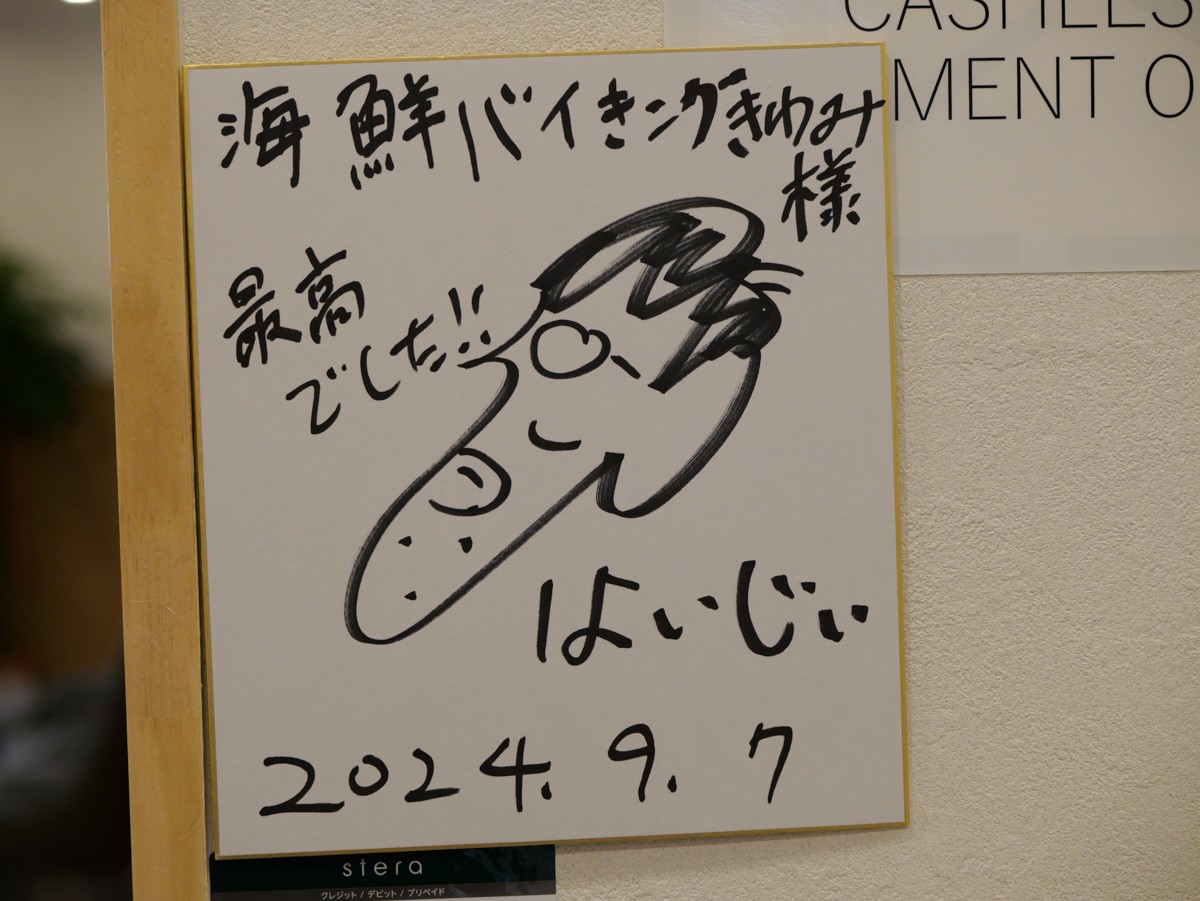 CASHLES
MENT O
海鮮バイきングきわみ
様
最高
でした!!
はいじぃ
2024.9.7
stera
クレジット / デビット / プリペイド